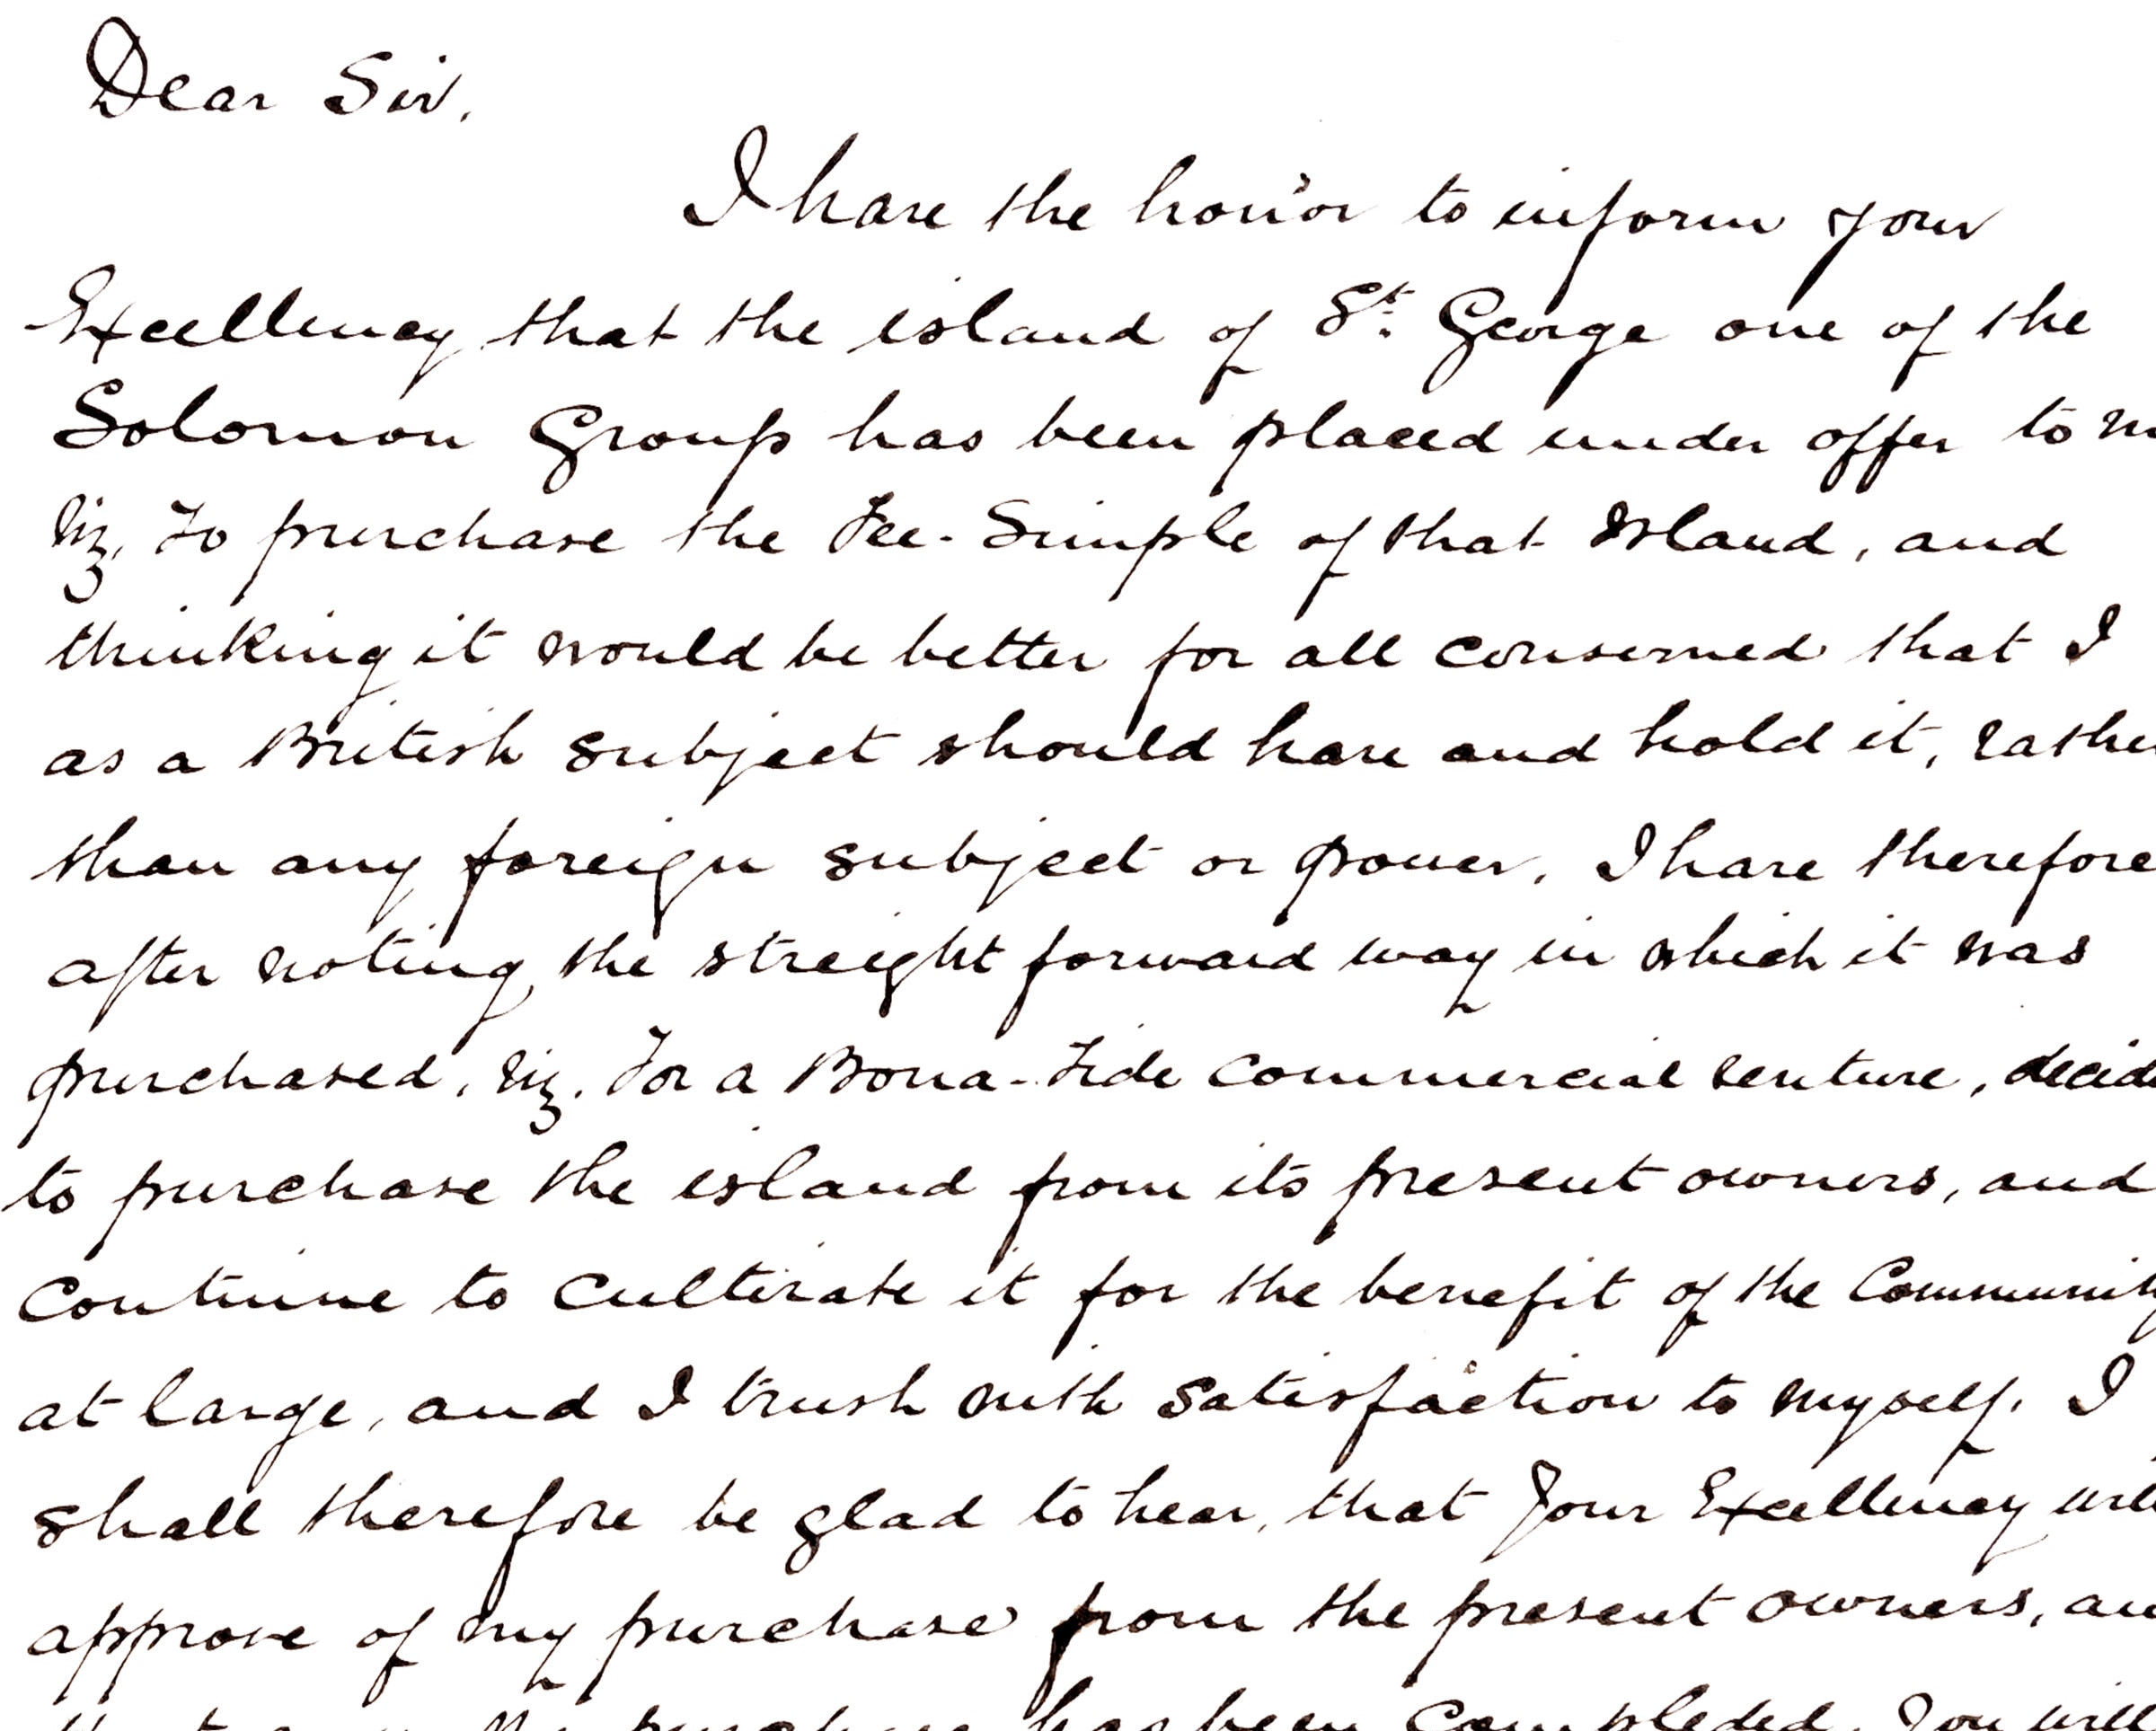 Dear Sir,
I have the honor to inform your
Excellency that the island of St. George one of the
Solomon Group has been placed under offer to
Viz, To purchase the Fee-Simple of that Island, and
thinking it would be better for all conserned that I
as a British subject should have and hold it, rathe
than any foreign subject or power. I have therefore
after noting the streight forward way in which it was
purchased, Viz. For a Bona-Fide commercial venture, decide
to purchase the island from its present owners, and
continue to cultivate it for the benefit of the Communit
at large, and I trust with satisfaction to myself. I
shall therefore be glad to hear, that Your Excellency will
approve of my purchase from the present owners, an
purchase has been Completed, You will